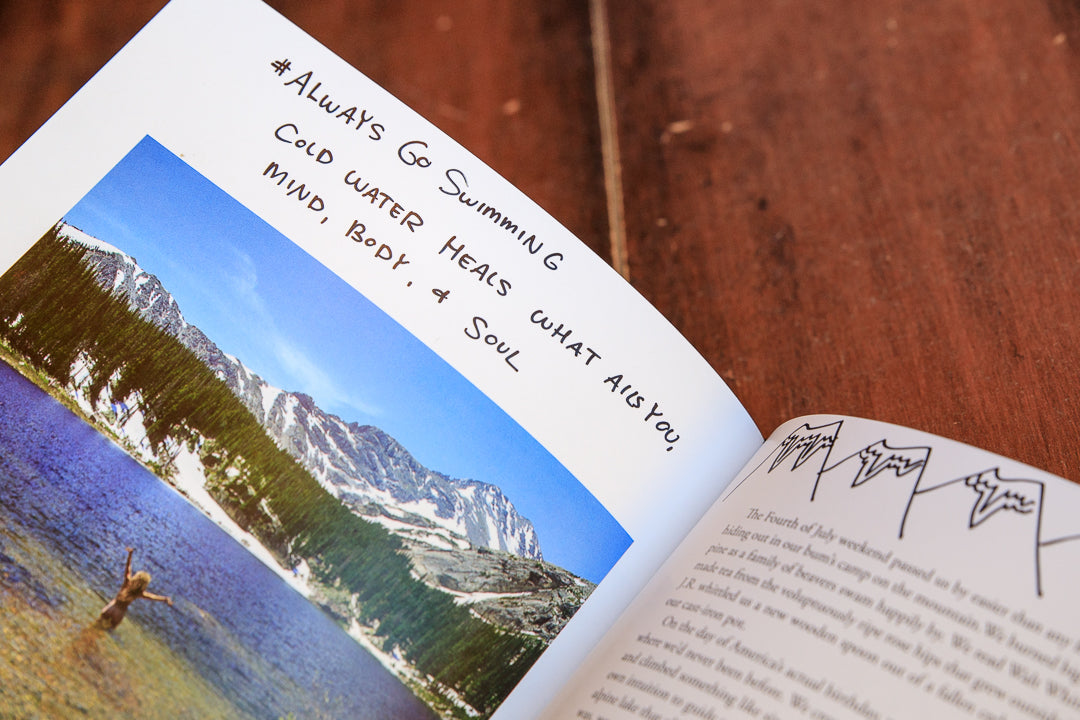 #ALWAYS GO SWIMMING
COLD WATER HEALS WHAT AILS YOU,
MIND, BODY, & SOUL
The Fourth of July weekend passed us by easier than any
hiding out in our bum's camp on the mountain. We burned big
pine as a family of beavers swam happily by. We read Walt Whit
made tea from the voluptuously ripe rose hips that grew outside
J.R. whittled us a new wooden spoon out of a fallen
our cast-iron pot.
On the day of America's actual birthday,
where we'd never been before. We
and climbed something like
own intuition to guide
alpine lake that